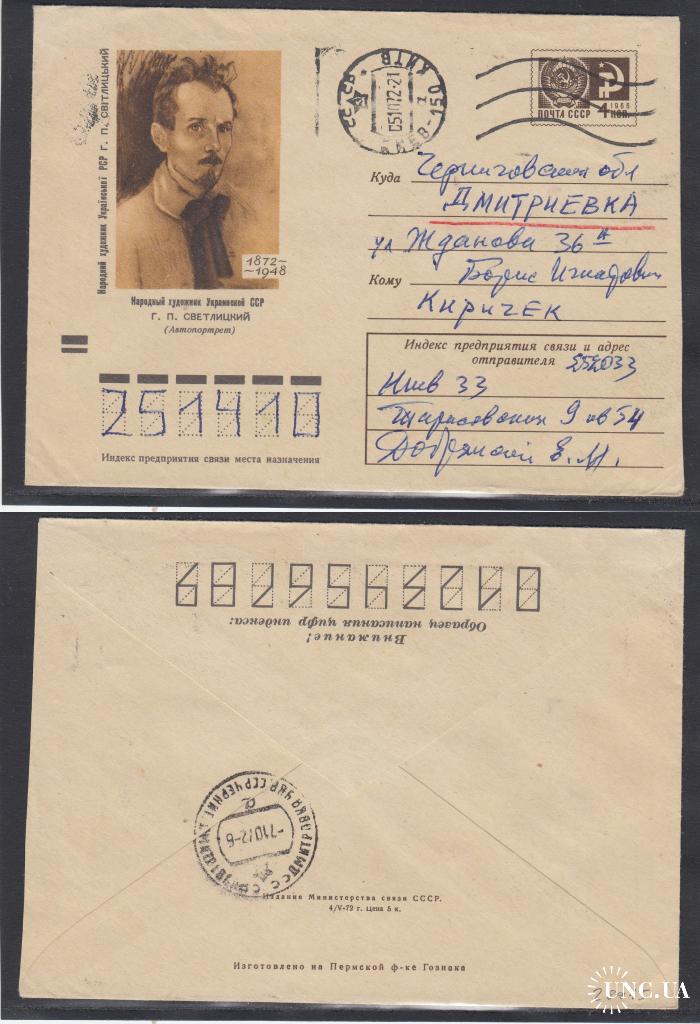 Народний художник Української РСР Г. П. СВІТЛИЦЬКИЙ
1872~
~1948
Народный художник Украинской ССР
Г. П. СВЕТЛИЦКИЙ
(Автопортрет)
СССР КИЇВ
051072-21
КИЕВ-150
1966
ПОЧТА СССР 4 КОП.
Куда Черниговская обл
ДМИТРИЕВКА
ул Жданова 36 А
Кому Борис Игнатович
Киричек
Индекс предприятия связи и адрес
отправителя 252033
Киев 33
Тарасовская 9 кв 54
Е. М.
251410
Индекс предприятия связи места назначения
Внимание!
Образец написания цифр индекса:
0123456789
-71072-6
Издание Министерства связи СССР.
4/V-72 г. Цена 5 к.
Изготовлено на Пермской ф-ке Гознака
UNC.UA